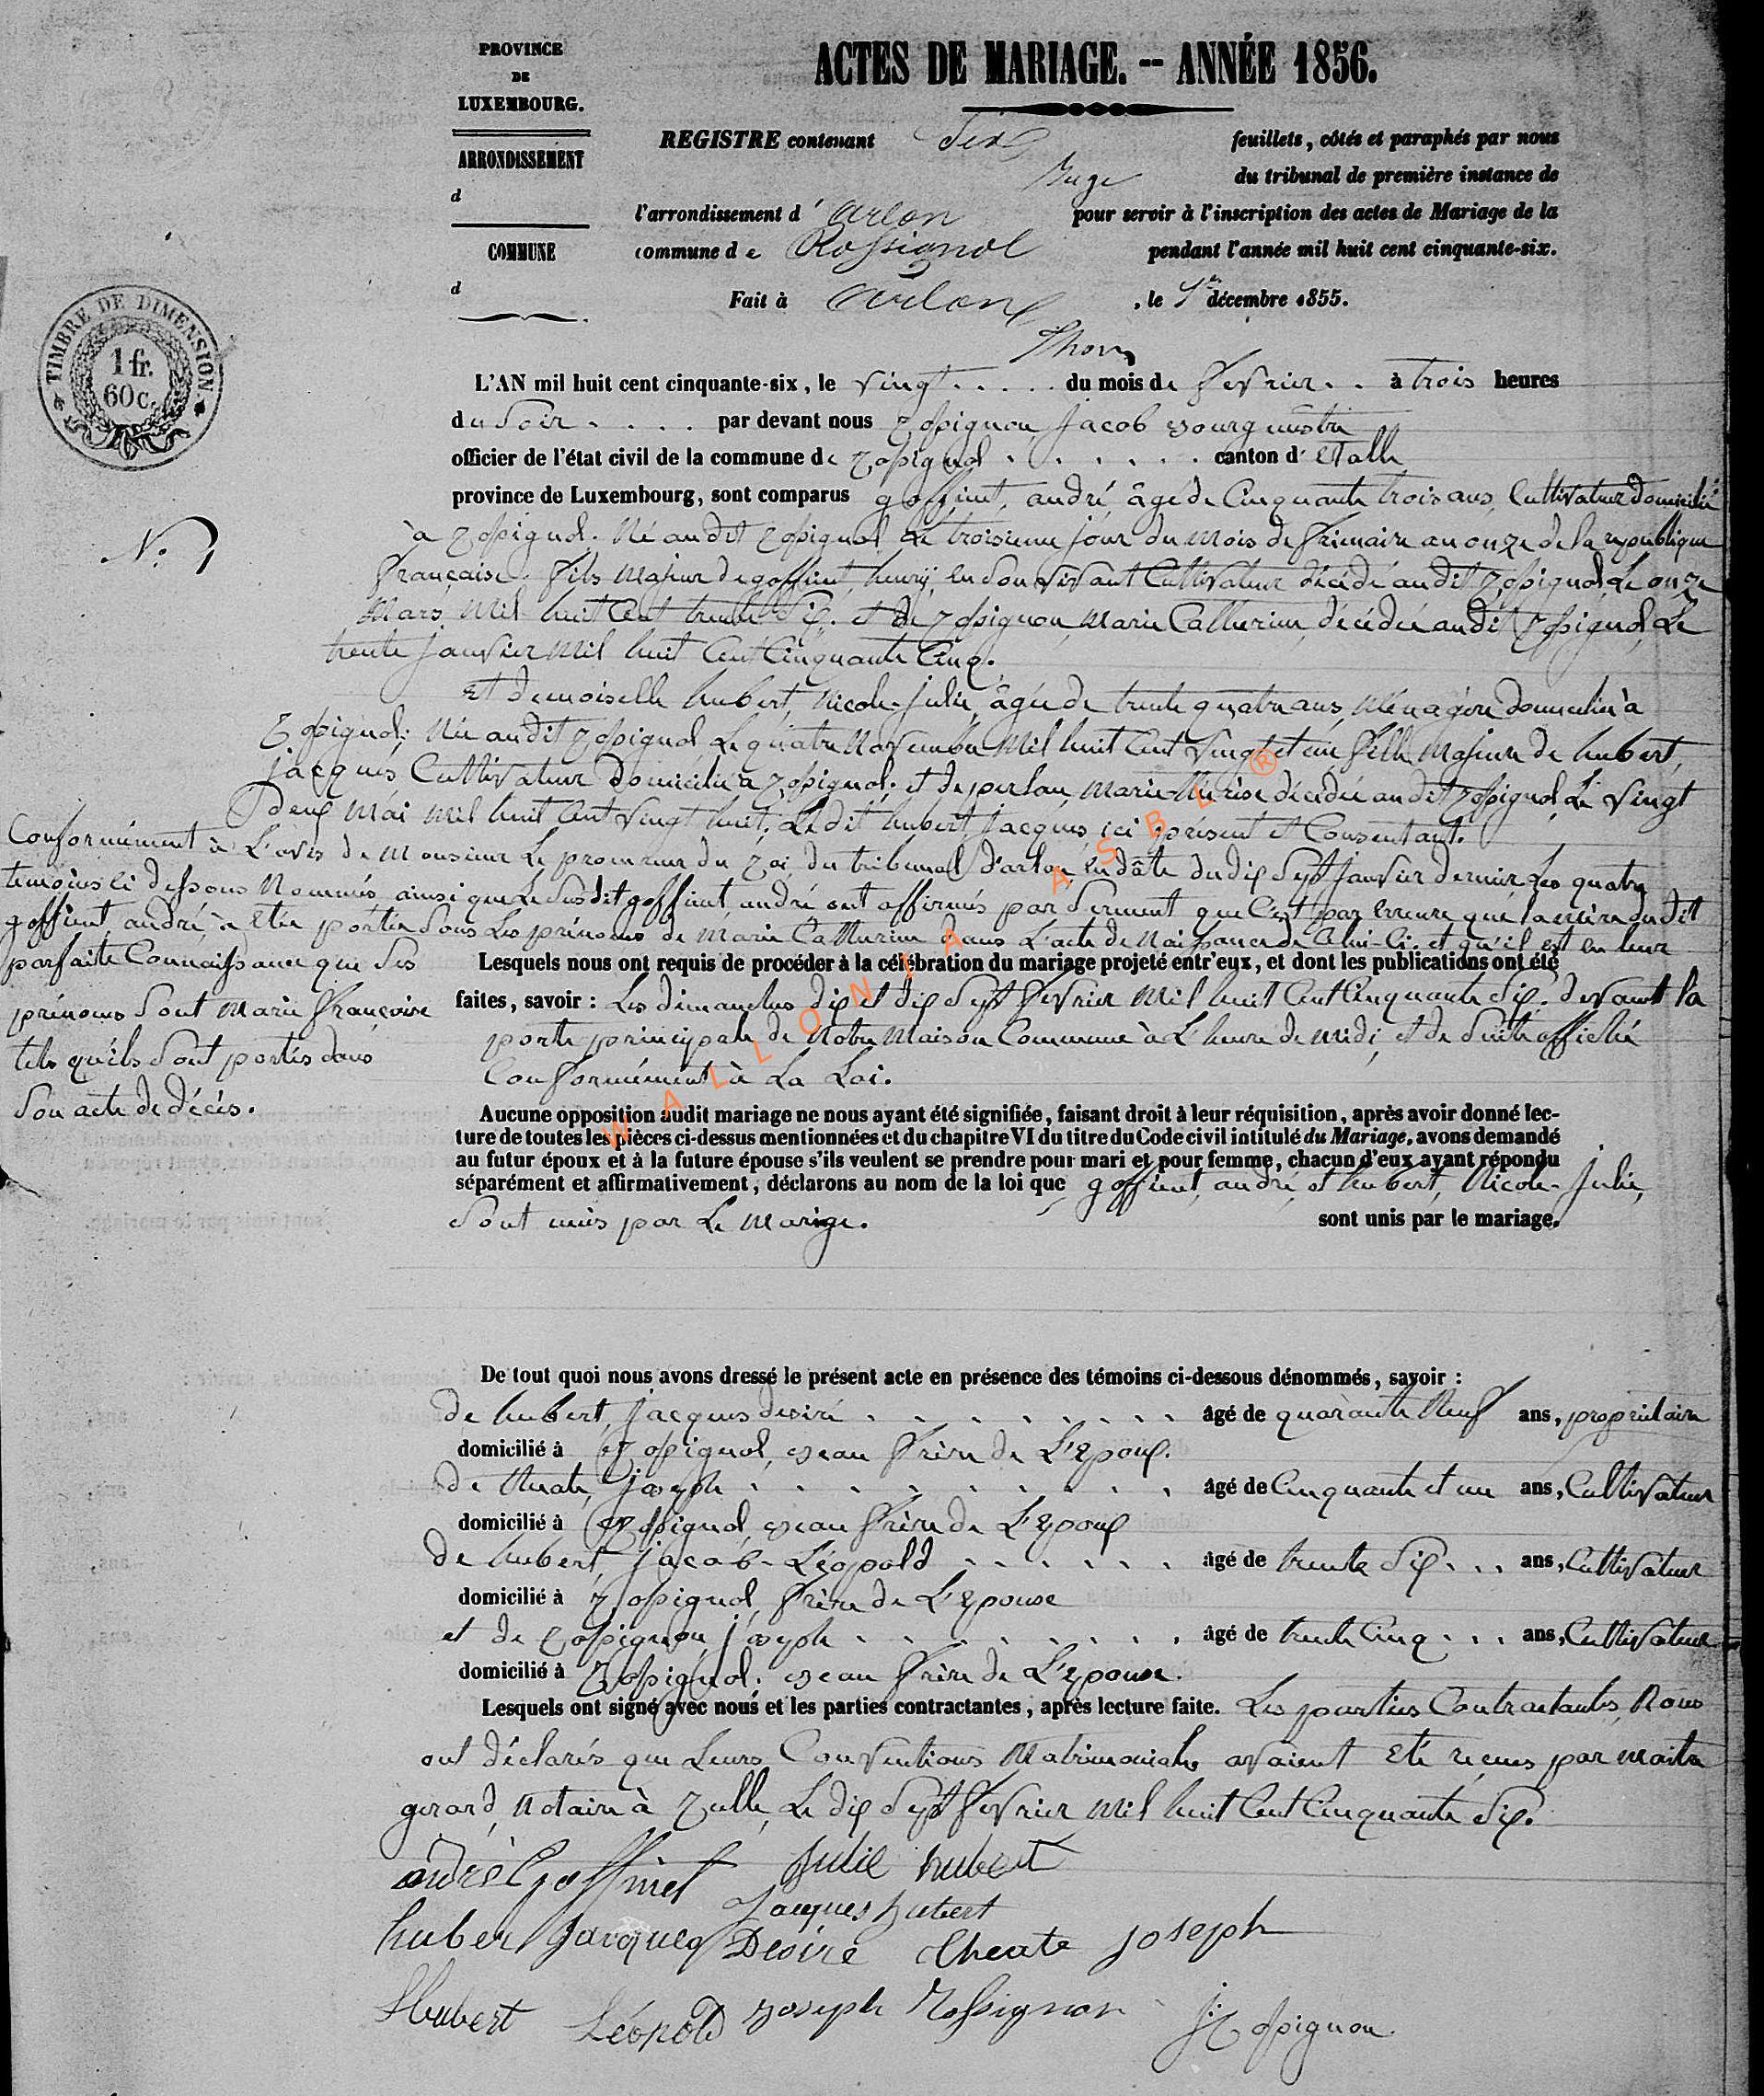 PROVINCE
DE
LUXEMBOURG.
ARRONDISSEMENT
d
COMMUNE
d
ACTES DE MARIAGE. -- ANNÉE 1856.
REGISTRE contenant Six feuillets, côtés et paraphés par nous
Juge du tribunal de première instance de
l'arrondissement d' Arlon pour servoir à l'inscription des actes de Mariage de la
commune d e Rossignol pendant l'année mil huit cent cinquante-six.
Fait à Arlon, le 1er décembre 1855.
TIMBRE DE DIMENSION.
1 fr.
60 c.
L'AN mil huit cent cinquante-six, le vingt . . . . . du mois de fevrier . . à trois heures
du Soir . . . . par devant nous Rossignon Jacob Bourgmestre
officier de l'état civil de la commune de Rossignol . . . . . . canton d' Etalle
province de Luxembourg, sont comparus goffinet, andré, âgé de Cinquante trois ans, Cultivateur domicilié
N° 1
à Rossignol. Né audit Rossignol Le troisieme jour du mois de frimaire an onze de la republique
française. fils majeur de goffinet, henry, en Son vivant Cultivateur décédé audit Rossignol, Le onze
Mars mil huit Cent trente Six. et de Rossignon, Marie Catherine, décédée audit Rossignol, Le
trente janvier mil huit Cent Cinquante Cinq.
Et demoiselle hubert, Nicole-Julie, âgée de trente quatre ans, Ménagère domiciliée à
Rossignol; Née audit Rossignol Le quatre Novembre Mil huit Cent vingt et un, fille Majeure de hubert,
jacques Cultivateur domicilié à Rossignol; et de perlau, marie-therise décédée audit Rossignol, Le vingt
deux mai mil huit Cent vingt huit; Ledit hubert, Jacques ici présent et Consentant.
Conformément à L'avis de Monsieur Le procureur du Roi, du tribunal d'arlon, en dâte du dix Sept janvier dernier, Les quatre
temoins ci dessous Nommés ainsi que Le Susdit goffinet, andré ont affirmés par Serment que C'est par erreure que la mère du dit
goffinet, andré, à etée portée Sous Les prénoms de Marie Catherine dans L'acte de Naissance de Celui-Ci. et qu'il est en leur
parfaite Connaissance que Ses
prénoms Sont Marie françoise
tels qu'ils Sont portés dans
Son acte de décès.
Lesquels nous ont requis de procéder à la célébration du mariage projeté entr'eux, et dont les publications ont été
faites, savoir : Les dimanches dix et dix Sept fevrier mil huit Cent Cinquante Six. devant la
porte principale de Notre Maison Commune à L'heure de midi, et de Suite affiché
Conformément à La Loi.
Aucune opposition audit mariage ne nous ayant été signifiée, faisant droit à leur réquisition, après avoir donné lec-
ture de toutes les pièces ci-dessus mentionnées et du chapitre VI du titre du Code civil intitulé du Mariage, avons demandé
au futur époux et à la future épouse s'ils veulent se prendre pour mari et pour femme, chacun d'eux ayant répondu
séparément et affirmativement, déclarons au nom de la loi que goffinet, andré, et hubert, Nicole-Julie,
Sont unis par Le marige. sont unis par le mariage.
WALLONIA ASBL ®
De tout quoi nous avons dressé le présent acte en présence des témoins ci-dessous dénommés, savoir :
de hubert, Jacques desiré . . . . . . . . . âgé de quarante Neuf ans, propriétaire
domicilié à Rossignol, Beau frère de L'Epoux.
de theate, Joseph . . . . . . . . . âgé de Cinquante et un ans, Cultivateur
domicilié à Rossignol, Beau frère de L'Epoux
de hubert, Jacob-Léopold . . . . . . âgé de trente Six . . . ans, Cultivateur
domicilié à Rossignol, frère de L'Epouse
et de Rossignon, Joseph . . . . . . . . âgé de trente Cinq . . . ans, Cultivateur
domicilié à Rossignol. Beau frère de L'Epouse.
Lesquels ont signé avec nous et les parties contractantes, après lecture faite. Les parties Contractantes, Nous
ont déclarés que Leurs Conventions Matrimoniales avaient Eté reçues par maitre
gerard, Notaire à Rulle, Le dix Sept fevrier mil huit Cent Cinquante Six.
andré Goffinet Julie hubert
Jacques hubert
huber Jacques Desiré theate joseph
Hubert Léopold Joseph Rossignon J: Rossignon